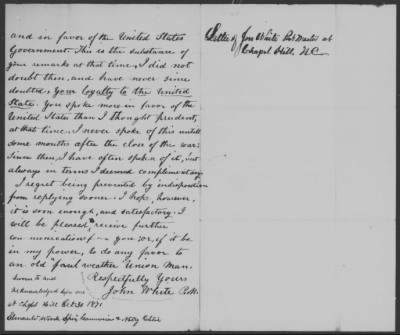 and in favor of the United States
Government. This is the substance of
your remarks at that time, I did not
doubt then, and have never since
doubted, your loyalty to the United
States. You spoke more in favor of the
United States than I thought prudent,
at that time. I never spoke of this untill
some months after the close of the war:
Since then, I have often spoken of it, but
always in terms I deemed complementary.
I regret being prevented by indisposition
from replying sooner. I hope, however,
it is soon enough, and satisfactory. I
will be pleased, to receive further
communications from you, or, if it be
in my power, to do any favor to
an old "foul weather Union Man.
Respectfully Yours
John White P.M.
Sworn to and
acknowledged before me
at Chapel Hill Oct 30 1871
Commissioner & Notary Public
Letter of Jno White Post Master at
Chapel Hill. N.C